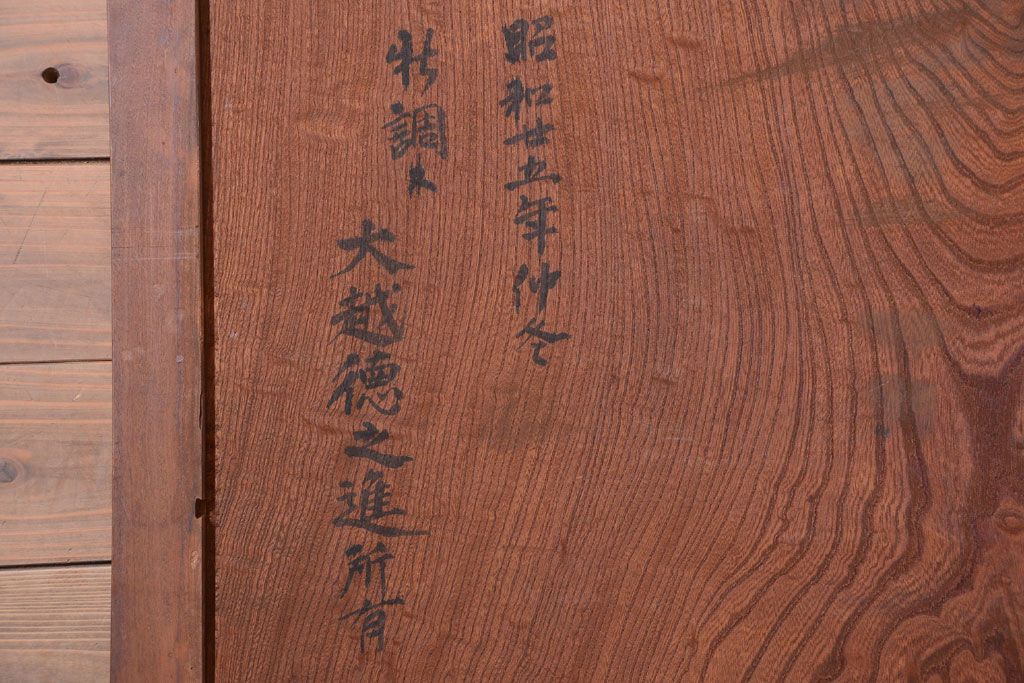 昭和廿五年仲冬
新調ス
大越徳之進所有